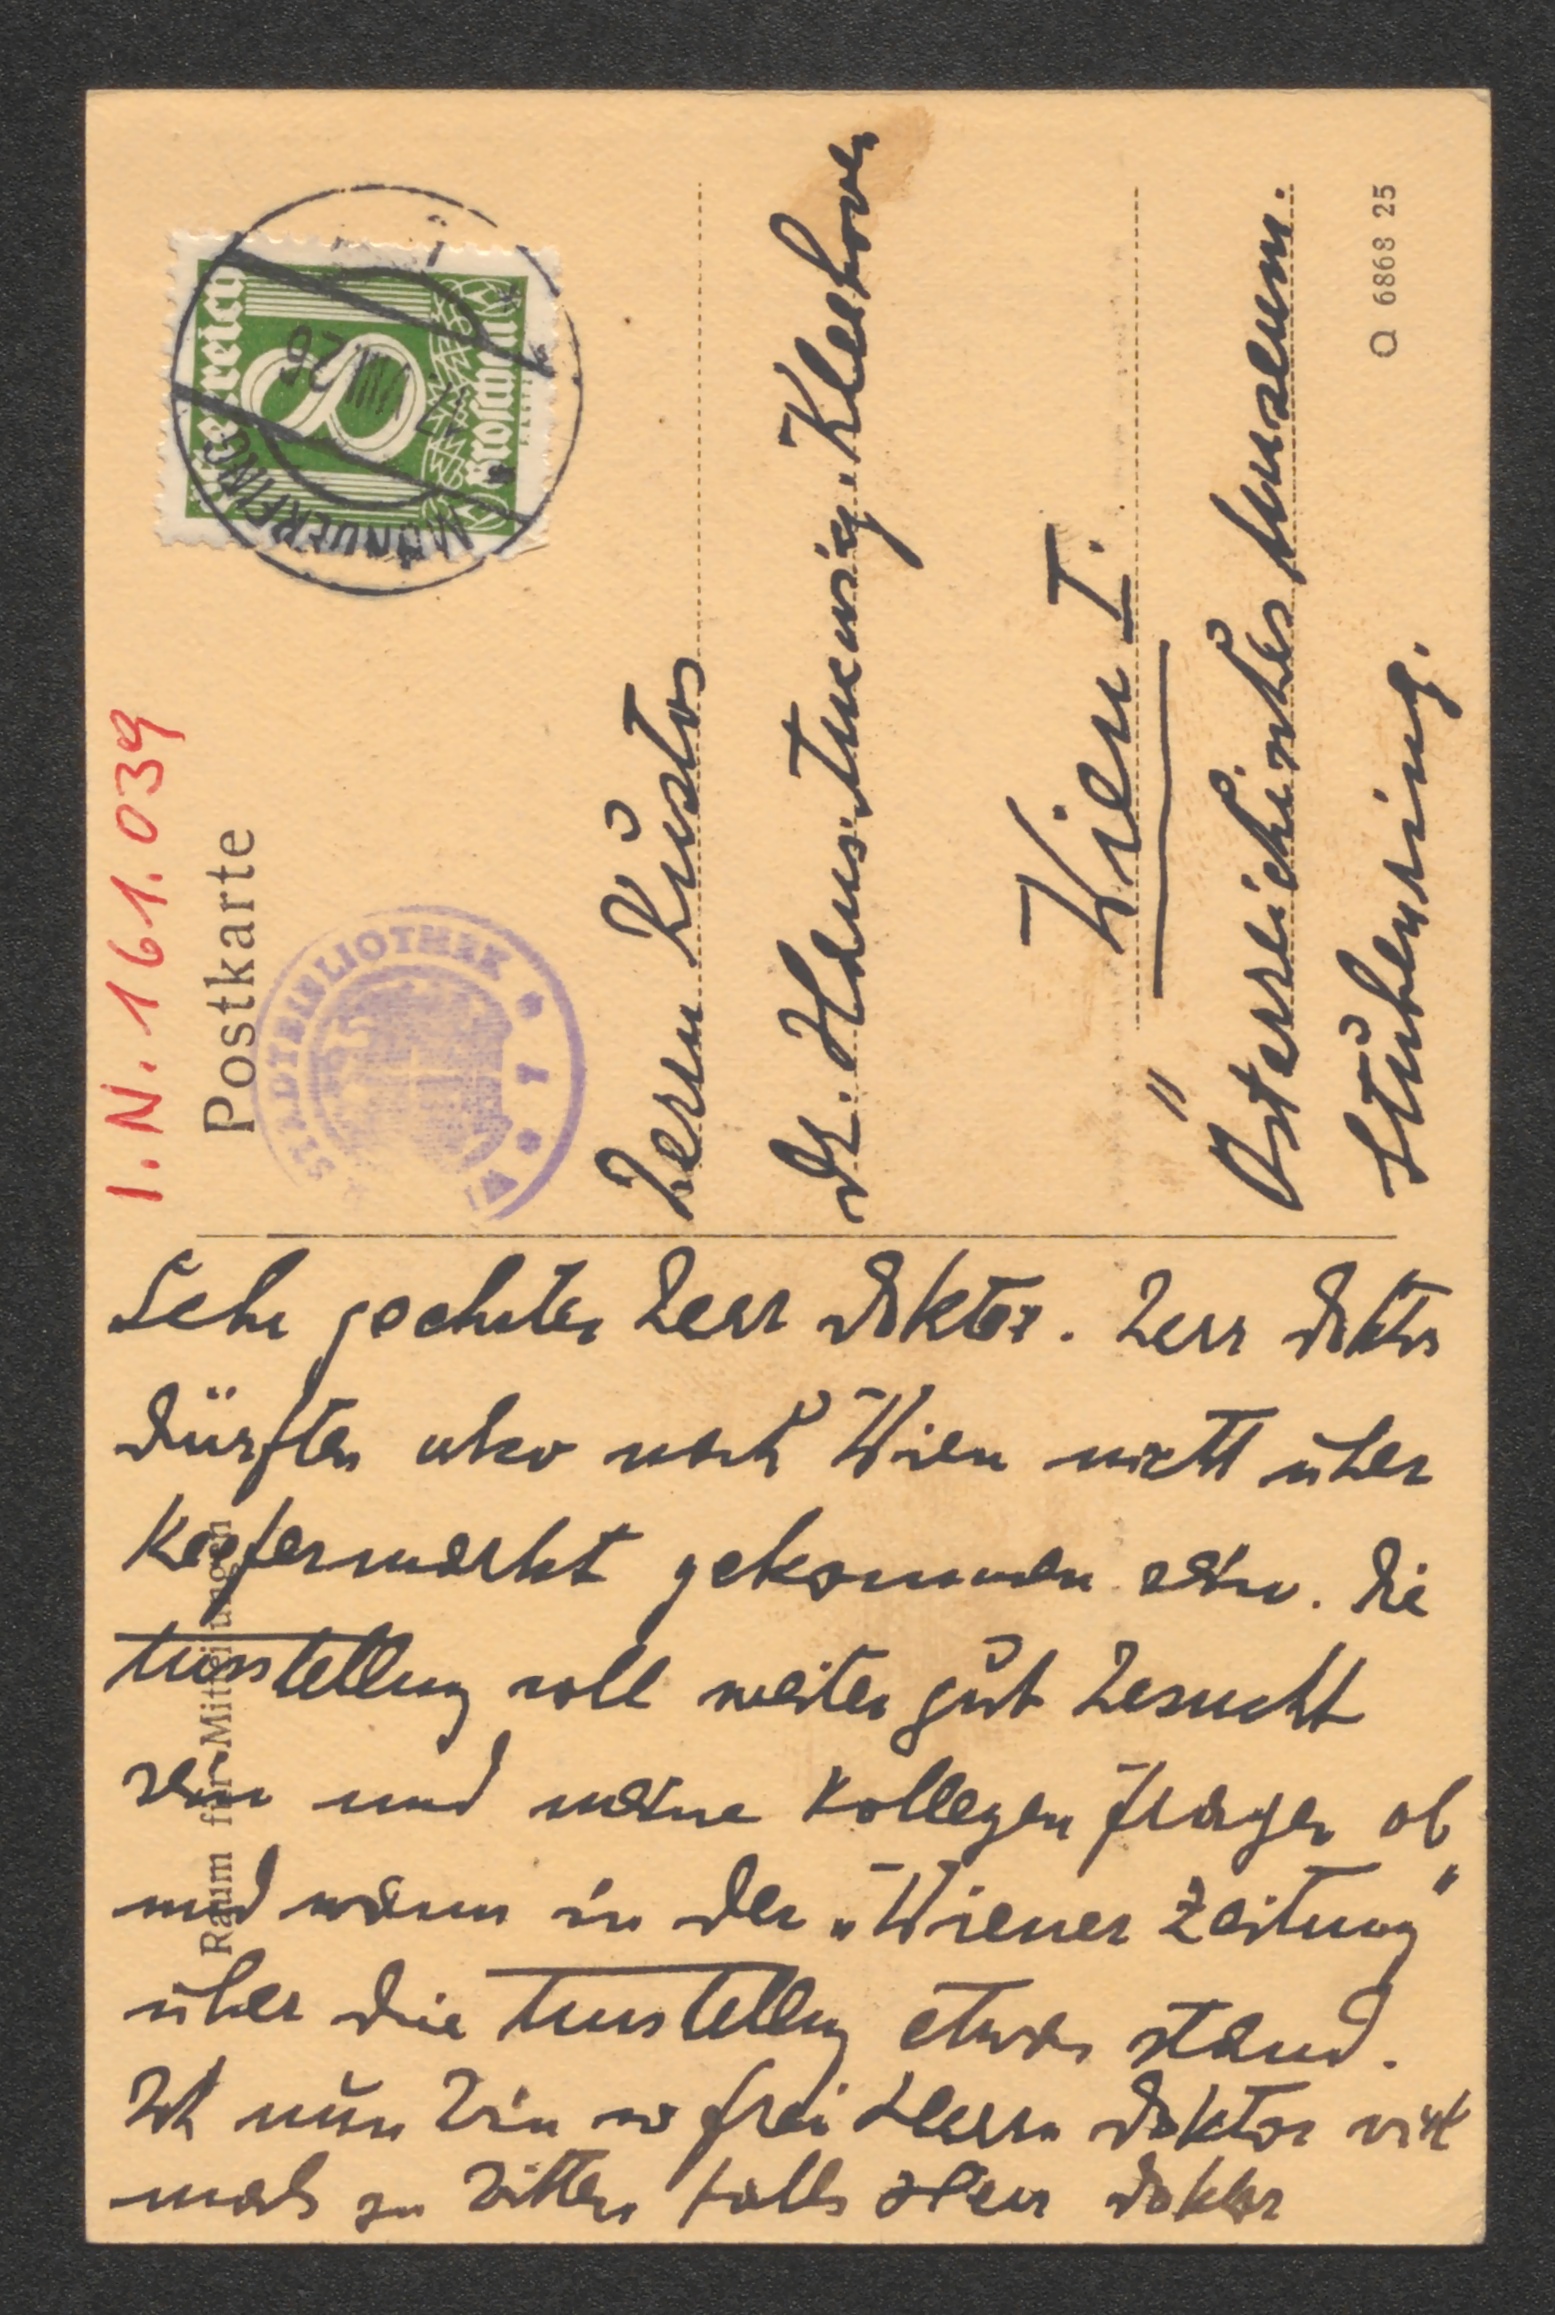 I. N. 161.039
Postkarte
Österreich
8
Groschen
MÜNDERFING
VIII 26
STADTBIBLIOTHEK
Herrn Kustos
Dr. Hans Ankwicz-Kleehoven
Wien I.
Österreichisches Museum.
Stubenring.
Q 6868 25
Raum für Mitteilungen
Sehr geehrter Herr Doktor. Herr Doktor
dürften also nach Wien nicht über
Kefermarkt gekommen sein. Die
Ausstellung soll weiter gut besucht
sein und meine Kollegen fragen ob
und wann in der „Wiener Zeitung“
über die Ausstellung etwas stand.
Ich nun bin so frei Herrn Doktor viel
mals zu bitten falls Herr Doktor